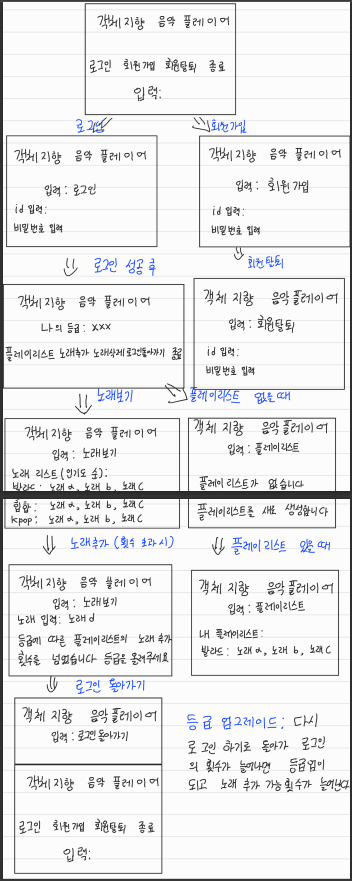 객체지향 음악 플레이어
로그인 회원가입 회원탈퇴 종료
입력:
로그인
회원가입
객체지향 음악 플레이어
입력: 로그인
id 입력:
비밀번호 입력
객체지향 음악 플레이어
입력: 회원가입
id 입력:
비밀번호 입력
로그인 성공 후
회원탈퇴
객체지향 음악 플레이어
나의 등급: XXX
플레이리스트 노래추가 노래삭제 로그인돌아가기 종료
객체지향 음악플레이어
입력: 회원탈퇴
id 입력:
비밀번호 입력
노래보기
플레이리스트 없을때
객체지향 음악 플레이어
입력: 노래보기
노래 리스트(인기도 순):
발라드: 노래 a, 노래 b, 노래 c
힙합: 노래 a, 노래 b, 노래 c
kpop: 노래 a, 노래 b, 노래 c
객체 지향 음악플레이어
입력: 플레이리스트
플레이리스트가 없습니다
플레이리스트를 새로 생성합니다
노래추가 (횟수 초과시)
플레이리스트 있을때
객체지향 음악 플레이어
입력: 노래보기
노래 입력: 노래 d
등급에 따른 플레이리스트의 노래 추가
횟수를 넘었습니다 등급을 올려주세요
객체 지향 음악플레이어
입력: 플레이리스트
내 플레이리스트:
발라드: 노래 a, 노래 b, 노래 c
로그인 돌아가기
객체 지향 음악플레이어
입력: 로그인돌아가기
객체지향 음악 플레이어
로그인 회원가입 회원탈퇴 종료
입력:
등급 업그레이드: 다시
로그인 하기로 돌아가 로그인
의 횟수가 늘어나면 등급업이
되고 노래 추가 가능횟수가 늘어난다